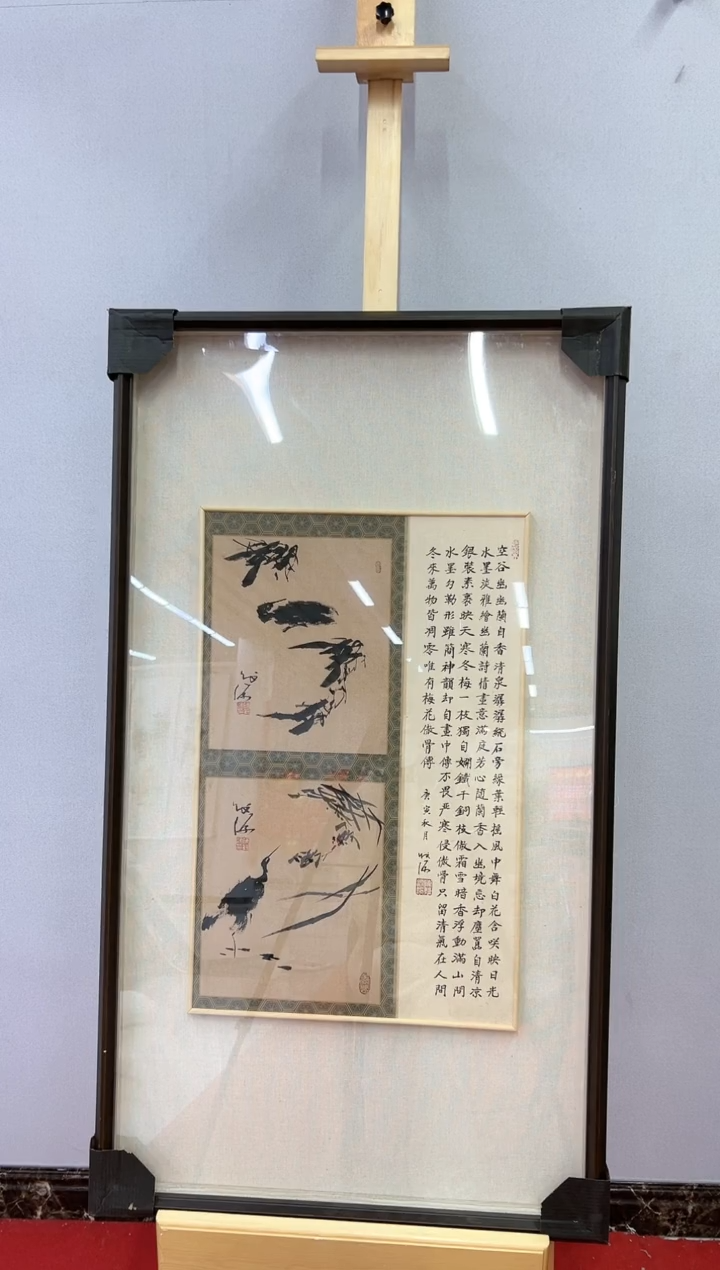 空谷幽幽蘭自香清泉潺潺繞石旁緣葉輕搖風中舞白花含咲映日光
水墨淡雅繪幽蘭詩情畫意滿庭芳心随蘭香入幽境忘却塵囂自清凉
銀裝素裹映天寒冬梅一枝獨自嫻鐵干銅枝傲霜雪暗香浮動滿山間
水墨勾勒形雖簡神韻却自畫中傳不畏严寒侵傲骨只留清氣在人間
冬來萬物皆凋零唯有梅花傲骨傳
庚寅秋月